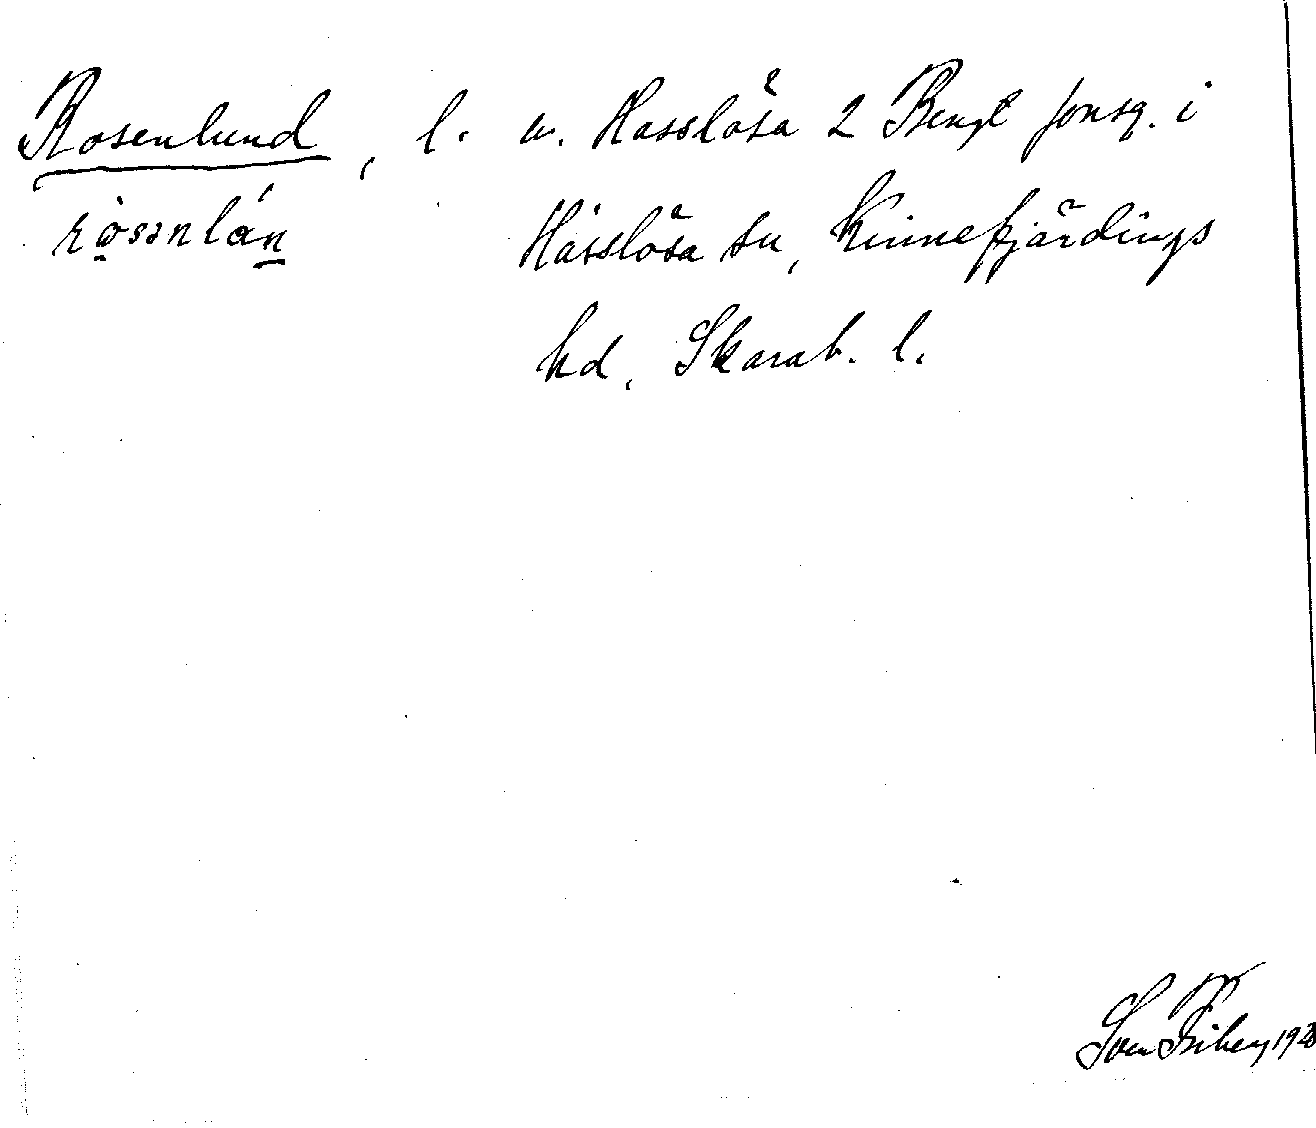 Rosenlund, l. u. Hasslösa 2 Bengt Jonsg. i
rȯsənlán Hässlösa sn, Kinnefjärdings
hd, Skarab. l.
Sven Fiberg